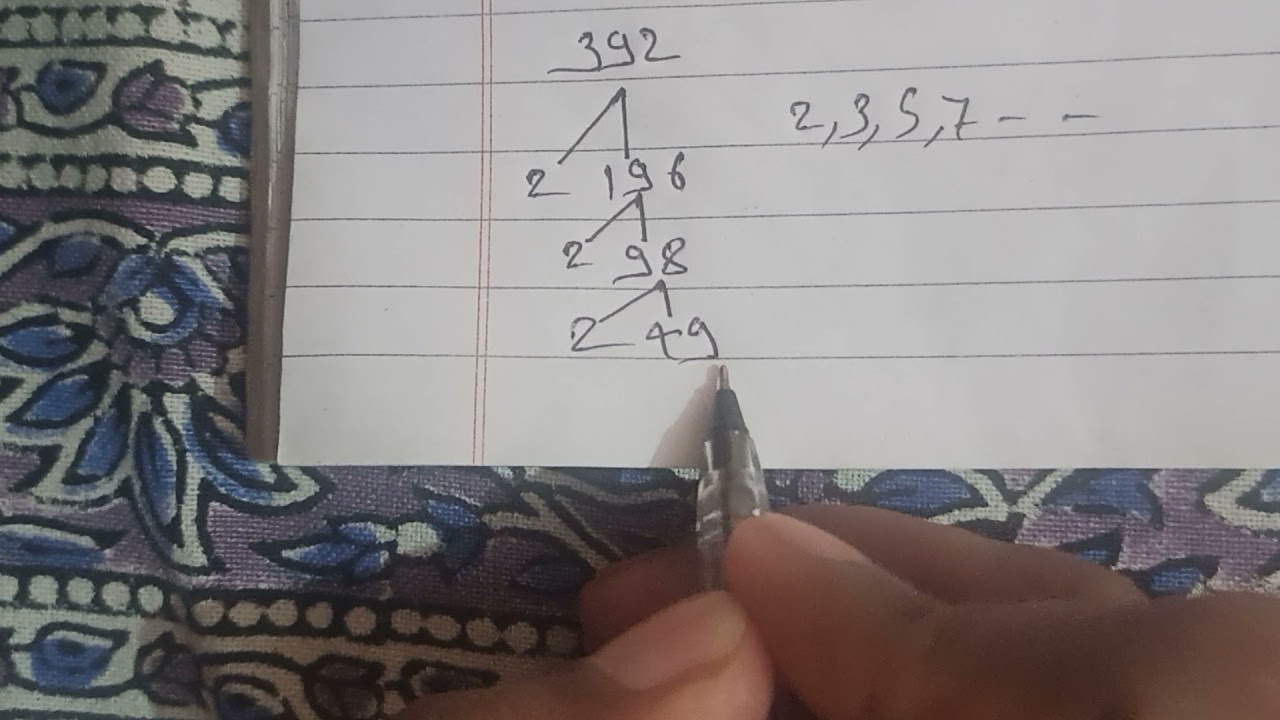 392
2,3,5,7 - -
2 196
2 98
2 49